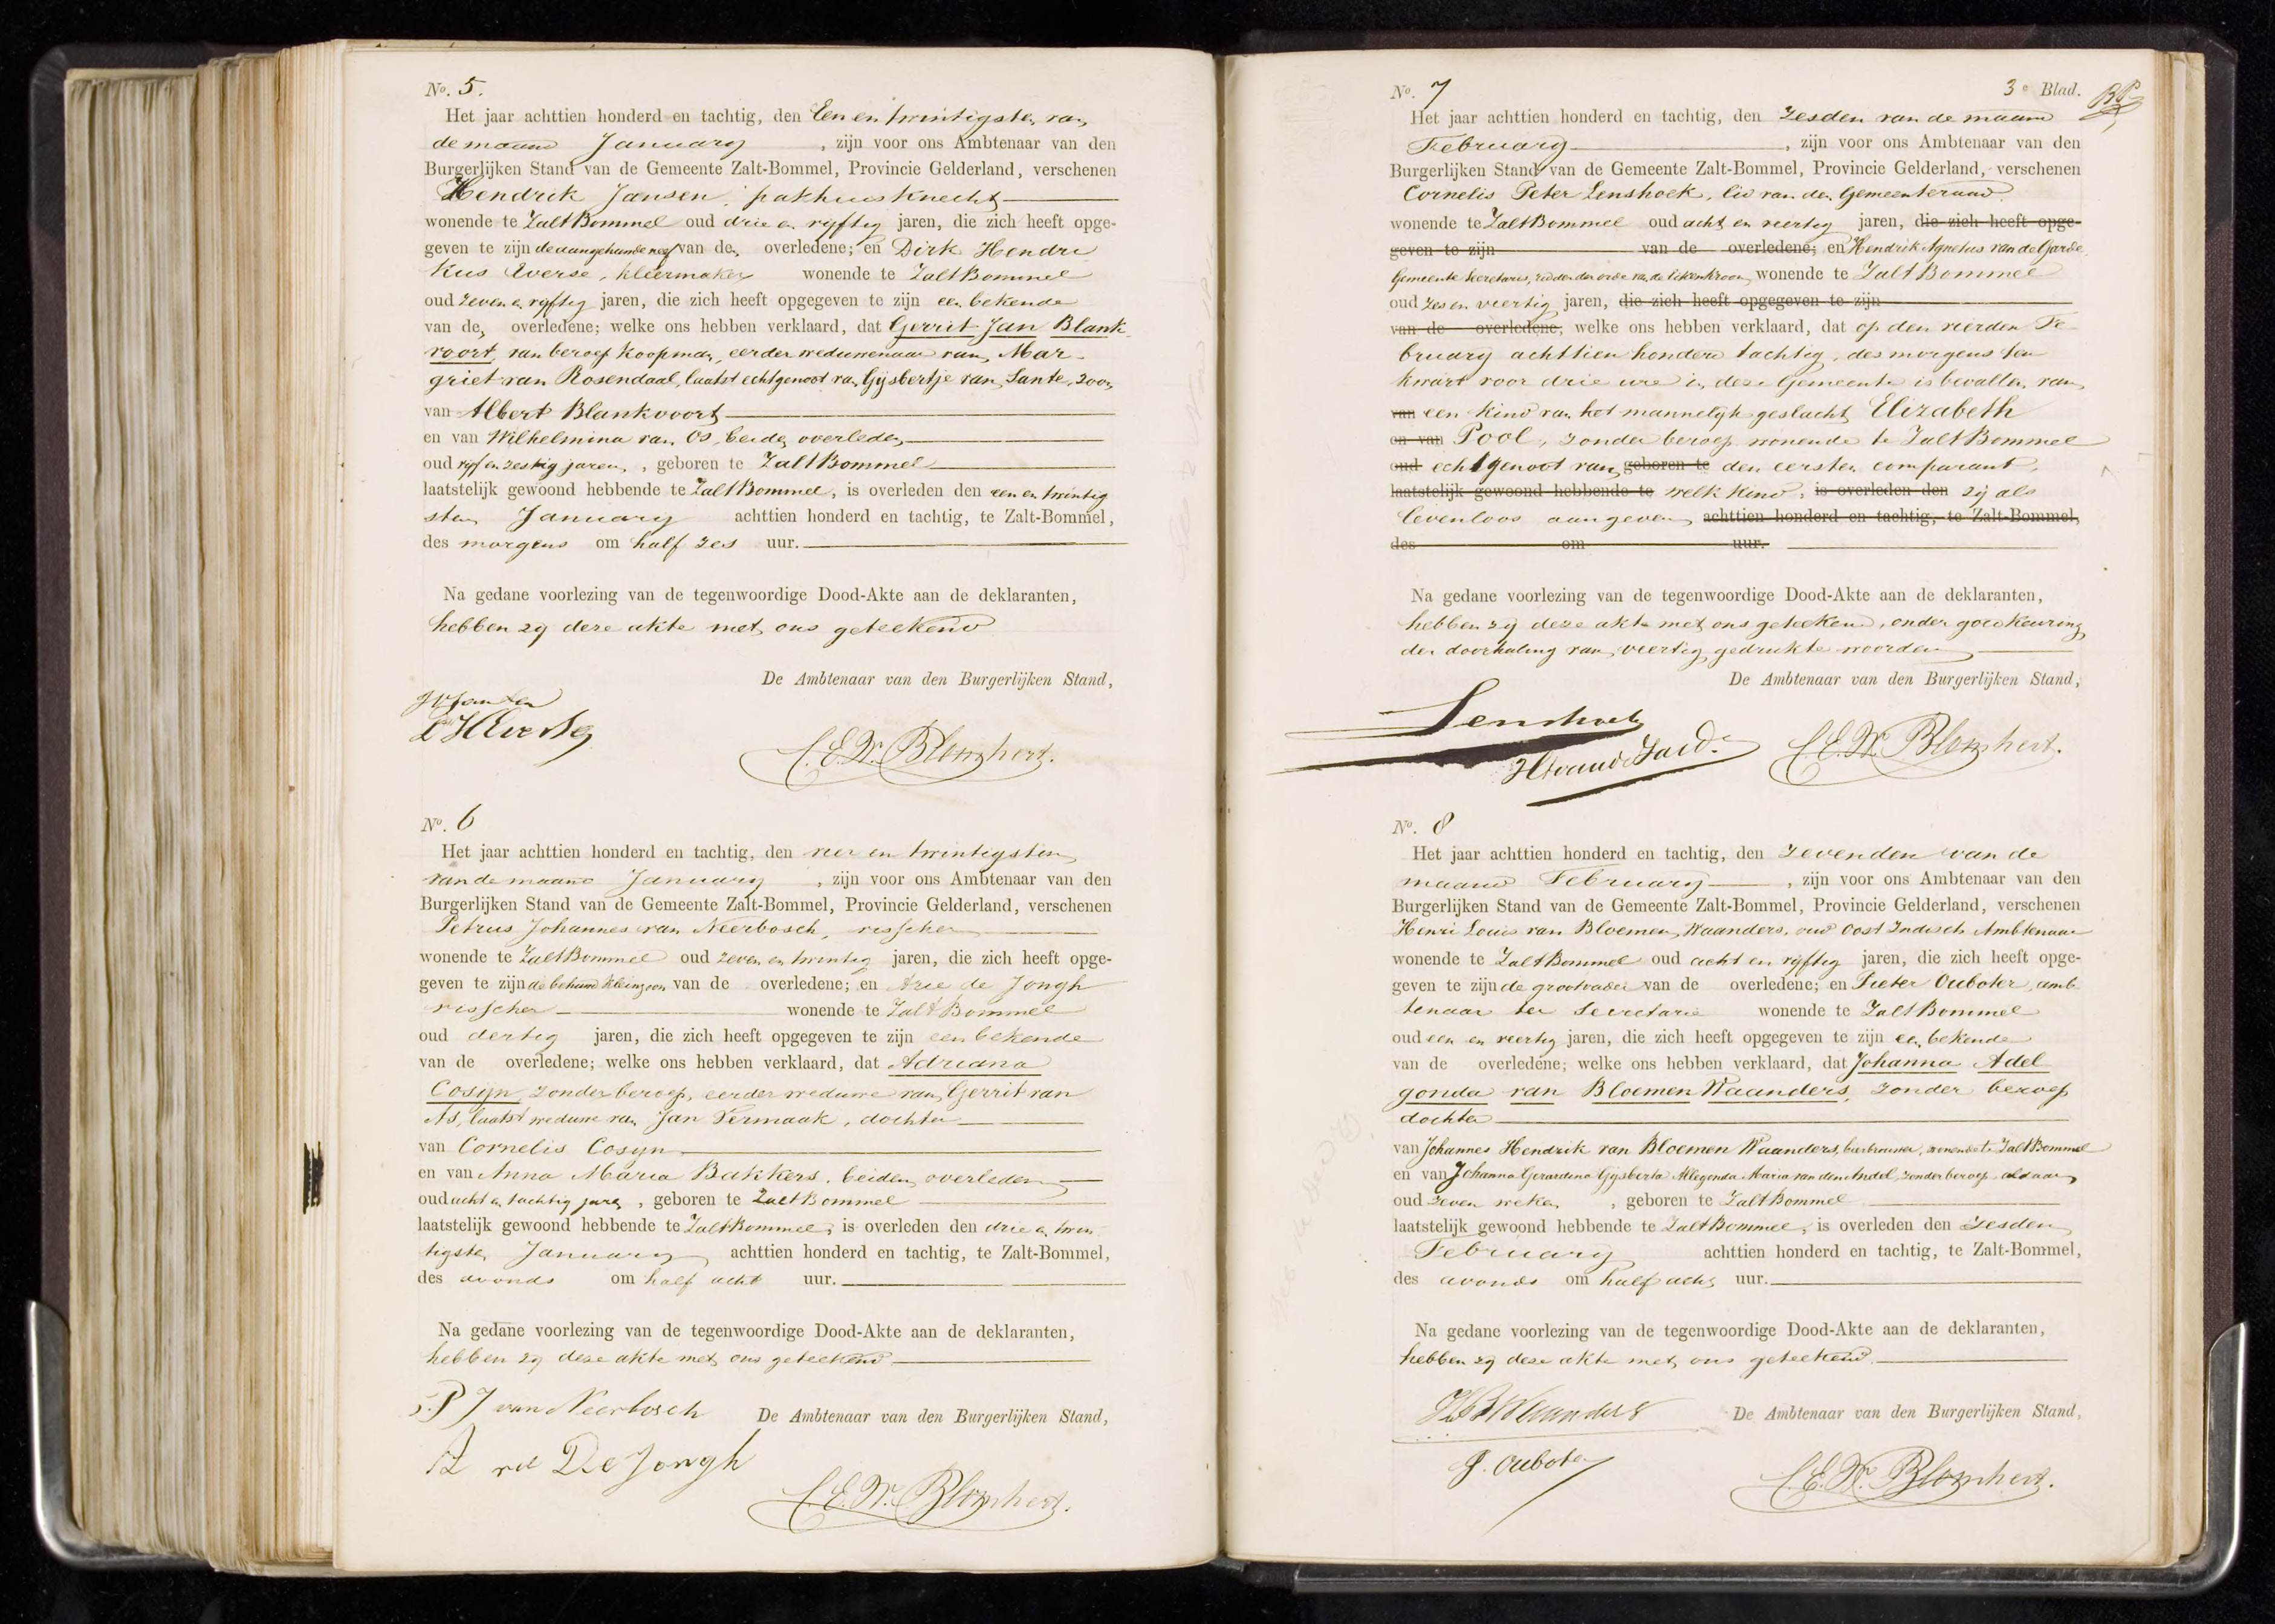 No. 5.
Het jaar achttien honderd en tachtig, den Een en twintigsten van
de maand January , zijn voor ons Ambtenaar van den
Burgerlijken Stand van de Gemeente Zalt-Bommel, Provincie Gelderland, verschenen
Hendrik Jansen, pakhuisknecht
wonende te ZaltBommel oud drie en vyftig jaren, die zich heeft opge-
geven te zijn de aangehuwde neef van den overledene; en Dirk Hendri
kus Everse, kleermaker wonende te ZaltBommel
oud zeven en vyftig jaren, die zich heeft opgegeven te zijn een bekende
van den overledene; welke ons hebben verklaard, dat Gerrit Jan Blank
voort, van beroep koopman, eerder weduwenaar van Mar-
griet van Rosendaal, laatst echtgenoot van Gijsbertje van Sante, zoon
van Albert Blankvoort
en van Wilhelmina van Os, beiden overleden
oud vyf en zestig jaren, , geboren te ZaltBommel
laatstelijk gewoond hebbende te ZaltBommel, is overleden den een en twintig
sten January achttien honderd en tachtig, te Zalt-Bommel,
des morgens om half zes uur.
Na gedane voorlezing van de tegenwoordige Dood-Akte aan de deklaranten,
hebben zy deze akte met ons geteekend
De Ambtenaar van den Burgerlijken Stand,
D H Everse
C.E.W. Blomhert.
No. 6
Het jaar achttien honderd en tachtig, den vier en twintigsten
van de maand January , zijn voor ons Ambtenaar van den
Burgerlijken Stand van de Gemeente Zalt-Bommel, Provincie Gelderland, verschenen
Petrus Johannes van Neerbosch, visscher
wonende te ZaltBommel oud zeven en twintig jaren, die zich heeft opge-
geven te zijn de behuwd kleinzoon van de overledene; en Arie de Jongh
visscher wonende te ZaltBommel
oud dertig jaren, die zich heeft opgegeven te zijn een bekende
van de overledene; welke ons hebben verklaard, dat Adriana
Cosyn, zonder beroep, eerder weduwe van Gerrit van
As, laatst weduwe van Jan Vermaak, dochter
van Cornelis Cosyn
en van Anna Maria Bakkers, beiden overleden
oud acht en tachtig jaren , geboren te ZaltBommel
laatstelijk gewoond hebbende te ZaltBommel, is overleden den drie en twin
tigsten January achttien honderd en tachtig, te Zalt-Bommel,
des avonds om half acht uur.
Na gedane voorlezing van de tegenwoordige Dood-Akte aan de deklaranten,
hebben zy deze akte met ons geteekend
P J van Neerbosch
De Ambtenaar van den Burgerlijken Stand,
A De Jongh
C.E.W. Blomhert.
No. 7
3e Blad.
Het jaar achttien honderd en tachtig, den zesden van de maand
February , zijn voor ons Ambtenaar van den
Burgerlijken Stand van de Gemeente Zalt-Bommel, Provincie Gelderland, verschenen
Cornelis Peter Lenshoek, lid van den Gemeenteraad
wonende te ZaltBommel oud acht en veertig jaren, die zich heeft opge-
geven te zijn van de overledene; en Hendrik Agnetus van de Garde,
Gemeente Secretaris, ridder der orde van de Eikenkroon, wonende te ZaltBommel
oud zes en veertig jaren, die zich heeft opgegeven te zijn
van de overledene, welke ons hebben verklaard, dat op den vierden Fe
bruary achttien honderd tachtig, des morgens ten
kwart voor drie ure in deze Gemeente is bevallen van
van een kind van het mannelyk geslacht Elizabeth
en van Pool, zonder beroep wonende te ZaltBommel
oud echtgenoot van geboren te den eersten comparant,
laatstelijk gewoond hebbende te welk kind, is overleden den zij als
levenloos aangeven achttien honderd en tachtig, te Zalt-Bommel,
des om uur.
Na gedane voorlezing van de tegenwoordige Dood-Akte aan de deklaranten,
hebben zij deze akte met ons geteekend, onder goedkeuring
der doorhaling van veertig gedrukte woorden
De Ambtenaar van den Burgerlijken Stand,
Lenshoek
C.E.W. Blomhert.
No. 8
Het jaar achttien honderd en tachtig, den zevenden van de
maand February , zijn voor ons Ambtenaar van den
Burgerlijken Stand van de Gemeente Zalt-Bommel, Provincie Gelderland, verschenen
Henri Louis van Bloemen Waanders, oud Oost Indisch Ambtenaar
wonende te ZaltBommel oud acht en vyftig jaren, die zich heeft opge-
geven te zijn de grootvader van de overledene; en Pieter Ouboter, amb-
tenaar ter Secretarie wonende te ZaltBommel
oud een en veertig jaren, die zich heeft opgegeven te zijn een bekende
van de overledene; welke ons hebben verklaard, dat Johanna Adel
gonda van Bloemen Waanders, zonder beroep
dochter
van Johannes Hendrik van Bloemen Waanders, bierbrouwer, wonende te ZaltBommel
en van Johanna Gerardina Gijsberta Allegonda Maria van den Andel, zonder beroep, aldaar
oud zeven weken , geboren te ZaltBommel
laatstelijk gewoond hebbende te ZaltBommel, is overleden den zesden
February achttien honderd en tachtig, te Zalt-Bommel,
des avonds om half acht uur.
Na gedane voorlezing van de tegenwoordige Dood-Akte aan de deklaranten,
hebben zy deze akte met ons geteekend
De Ambtenaar van den Burgerlijken Stand,
P. Ouboter
C.E.W. Blomhert.